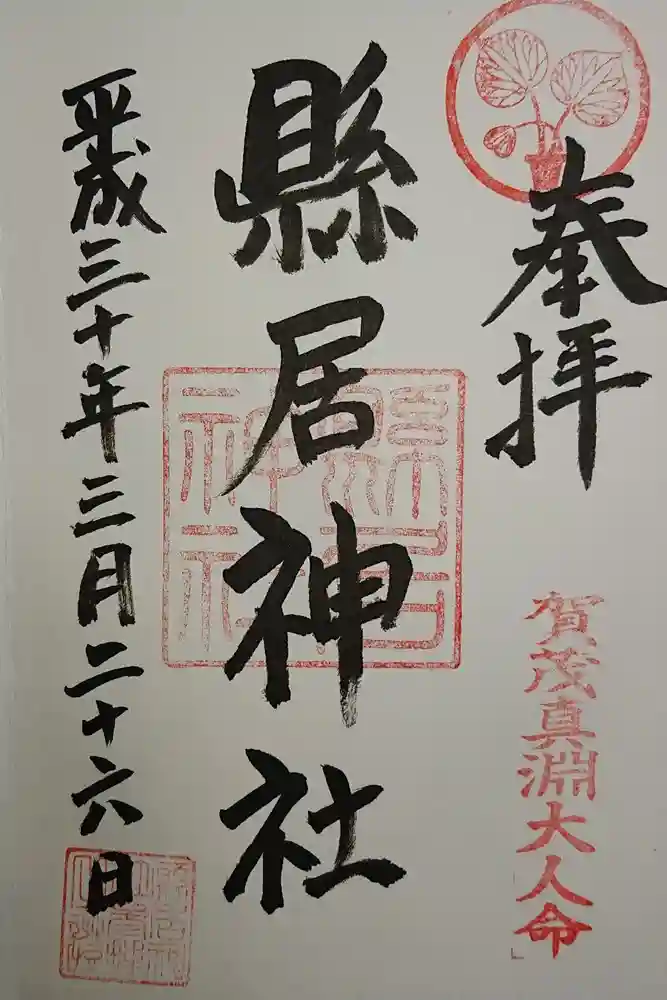 奉拝
賀茂真淵大人命
縣居神社
縣居神社
平成三十年三月二十六日